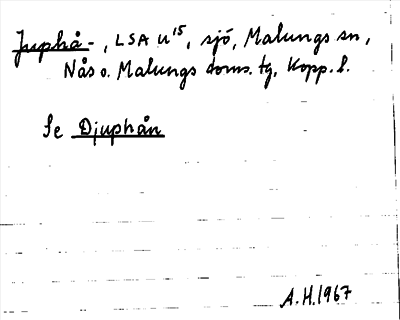 Juphå-, LSA U¹⁵, sjö, Malungs sn,
Nås o. Malungs doms. tg, Kopp. l.
Se Djuphån
A.H. 1967